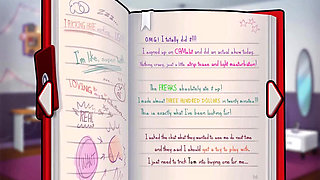 I'm like, super
TOYING
REAL
O.M.G! I totally did it!!!
I signed up on CAMwhst and did an actual show today.
Nothing crazy, just a little strip tease and light masturbation!
The FREAKS absolutely ate it up!
I made almost THREE HUNDRED DOLLARS in twenty minutes!!
This is exactly what I've been looking for!
I asked the chat what they wanted to see me do next time
and they said I should get a toy to play with.
I just need to trick Tom into buying one for me...